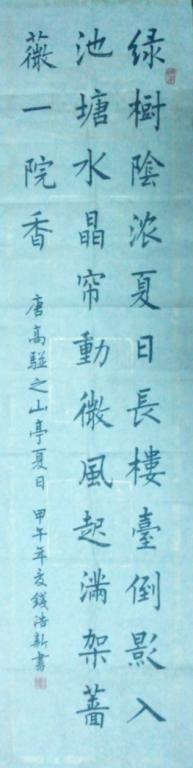 绿樹陰浓夏日長樓臺倒影入
池塘水晶帘動微風起滿架蔷
薇一院香
唐高駢之山亭夏日 甲午年 錢浩新書